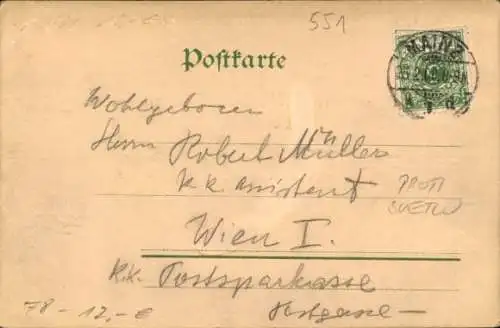 551
MAINZ
Postkarte
Wohlgeboren
Herrn Robert Müller
k k Assistent
Wien I.
k.k. Postsparkasse
78 - 12,- €